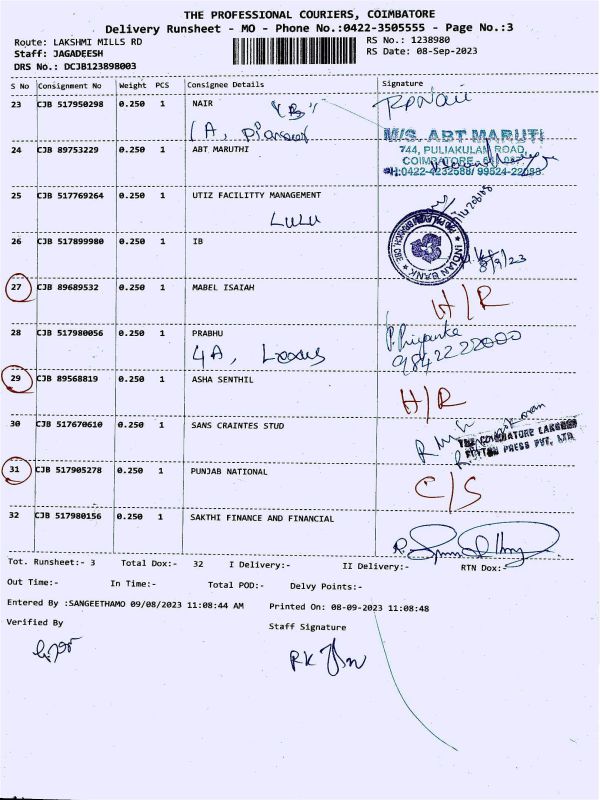 THE PROFESSIONAL COURIERS, COIMBATORE
Delivery Runsheet - MO - Phone No.:0422-3505555 - Page No.:3
Route: LAKSHMI MILLS RD
Staff: JAGADEESH
DRS No.: DCJB123898003
RS No.: 1238980
RS Date: 08-Sep-2023
S No Consignment No Weight PCS Consignee Details Signature
23 CJB 517950298 0.250 1 NAIR
1A,
24 CJB 89753229 0.250 1 ABT MARUTHI
M/S. ABT MARUTI
744, PULIAKULAM ROAD,
25 CJB 517769264 0.250 1 UTIZ FACILITTY MANAGEMENT
LULU
26 CJB 517899980 0.250 1 IB
INDIAN BANK
8/9/23
27 CJB 89689532 0.250 1 MABEL ISAIAH
H/R
28 CJB 517980056 0.250 1 PRABHU
4A, Lexus
P. Priyanka
9842222000
29 CJB 89568819 0.250 1 ASHA SENTHIL
H/R
30 CJB 517670610 0.250 1 SANS CRAINTES STUD
THE COIMBATORE LAKSHMI
PRESS PVT. LTD.
31 CJB 517905278 0.250 1 PUNJAB NATIONAL
C/S
32 CJB 517980156 0.250 1 SAKTHI FINANCE AND FINANCIAL
Tot. Runsheet:- 3 Total Dox:- 32 I Delivery:- II Delivery:- RTN Dox:-
Out Time:- In Time:- Total POD:- Delvy Points:-
Entered By :SANGEETHAMO 09/08/2023 11:08:44 AM Printed On: 08-09-2023 11:08:48
Verified By
Staff Signature